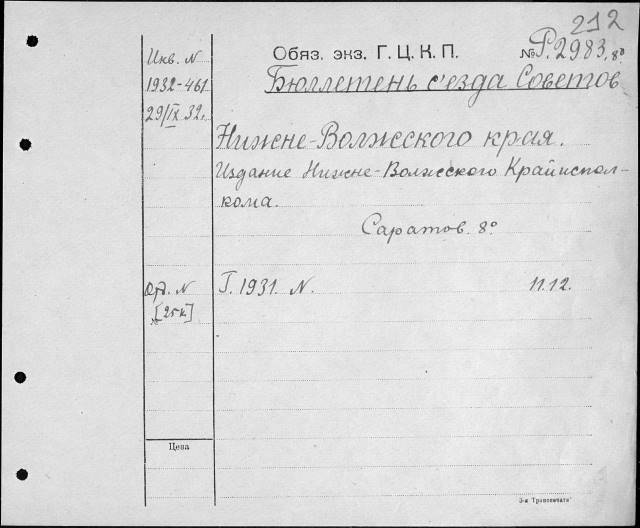 212
Инв. N Обяз. экз. Г. Ц. К. П. № Р. 2983, 8°
1932-461 Бюллетень с'езда Советов
29/IX 32.
Нижне-Волжского края.
Издание Нижне-Волжского Крайиспол-
кома.
Саратов. 8°
Ор. N Г. 1931. N. 11.12.
[25к]
Цена
3-я Транспечати